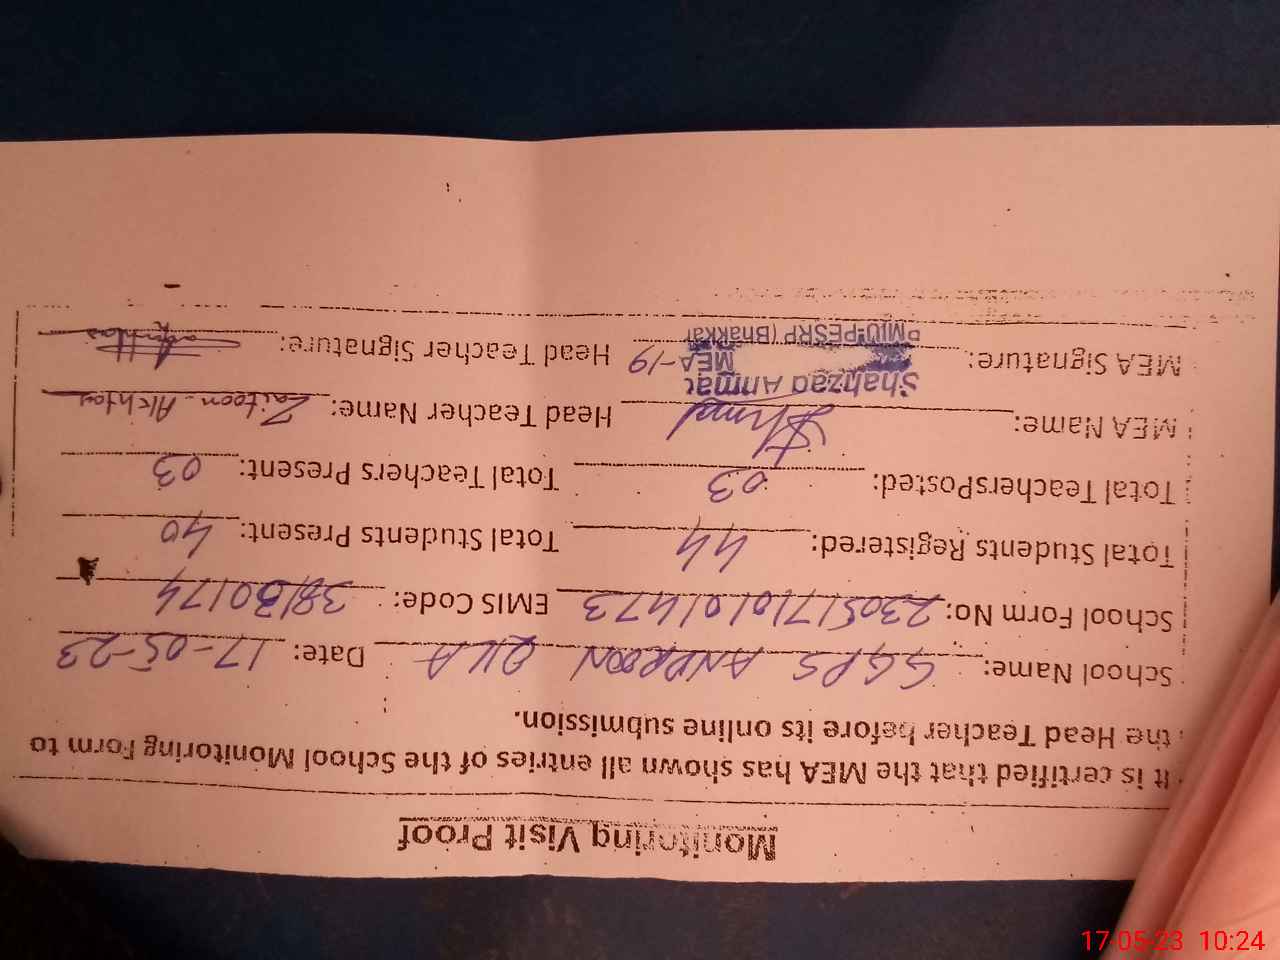 Monitoring Visit Proof
It is certified that the MEA has shown all entries of the School Monitoring Form to
the Head Teacher before its online submission.
School Name: GGPS ANDROON QILA Date: 17-05-23
School Form No: 23051710101473 EMIS Code: 38130174
Total Students Registered: 44 Total Students Present: 40
Total TeachersPosted: 03 Total Teachers Present: 03
MEA Name: Head Teacher Name: Zaitoon Akhtar
Shahzad Ahmad
MEA-19
MEA Signature: Head Teacher Signature:
MIU-PESRP (Bhakkar
17-05-23 10:24